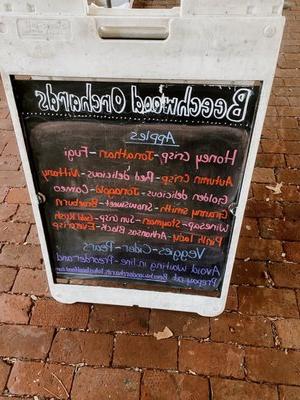 Beechwood Orchards
Apples
Honey Crisp - Jonathan - Fuji
Autumn Crisp - Red Delicious - Nittany
Golden delicious - Jonagold - Cameo
Granny Smith - Braeburn
Winesap - Stayman - Sun Crisp - Gold Rush
Pink lady - Arkansas Black - Evercrisp
Veggies - Cider - Pears
Avoid waiting in line - Preorder and
Prepay at